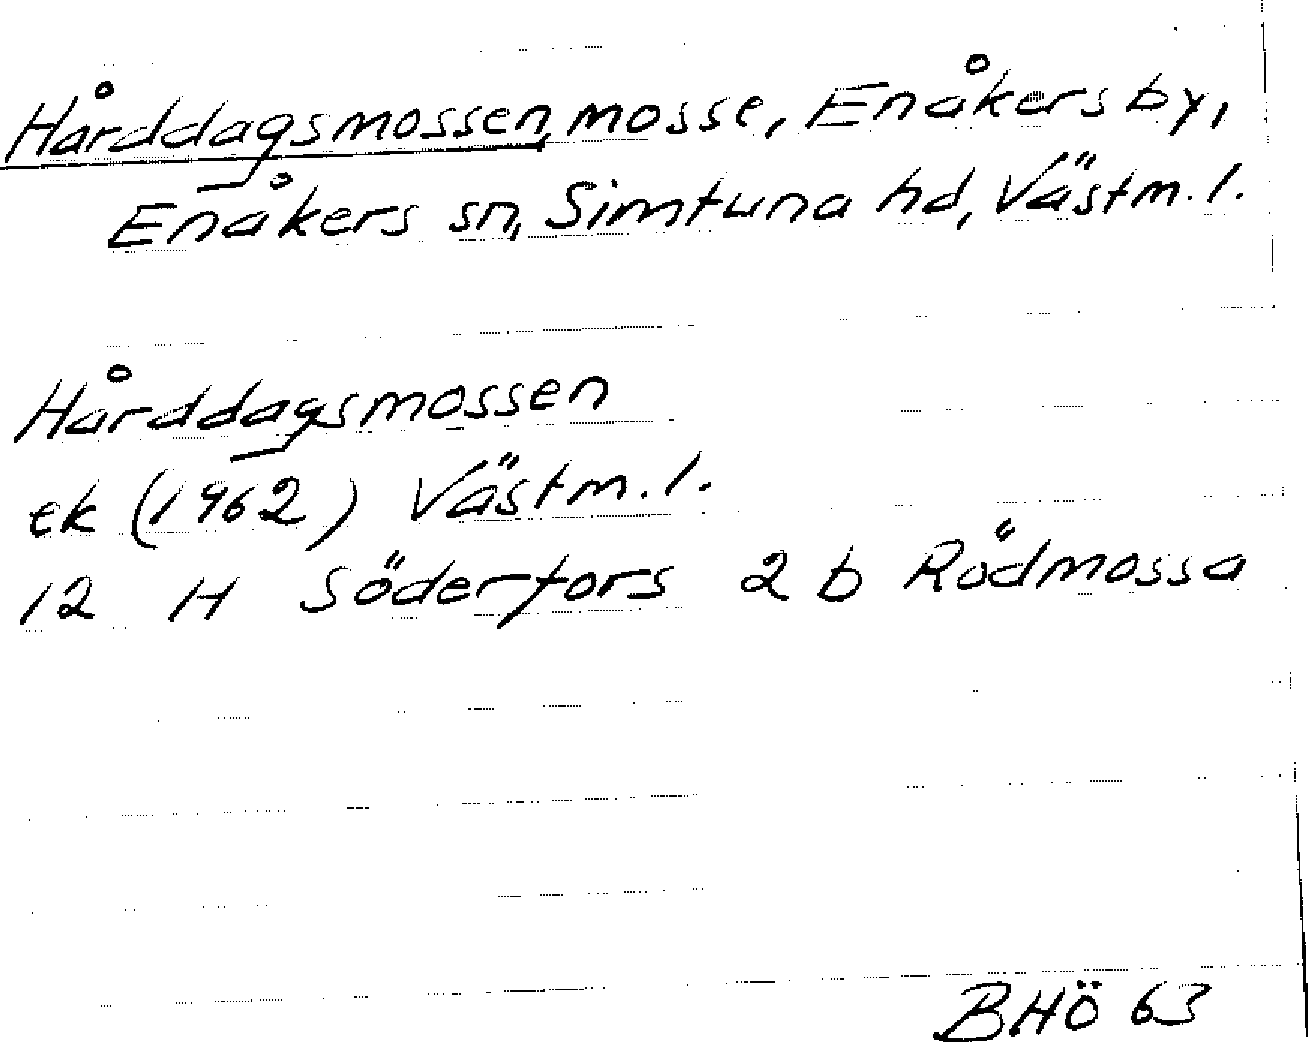 Hårddagsmossen, mosse, Enåkers by,
Enåkers sn, Simtuna hd, Västm. l.
Hårddagsmossen
ek (1962) Västm. l.
12 H Söderfors 2 b Rödmossa
BHÖ 63